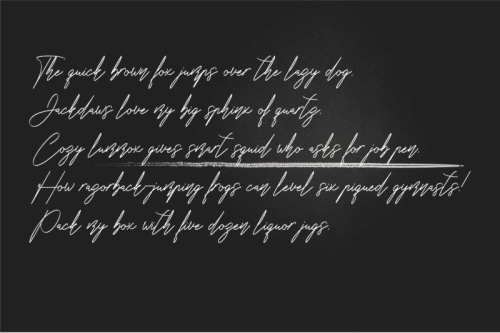 The quick brown fox jumps over the lazy dog.
Jackdaws love my big sphinx of quartz.
Cozy lummox gives smart squid who asks for job pen.
How razorback-jumping frogs can level six piqued gymnasts!
Pack my box with five dozen liquor jugs.